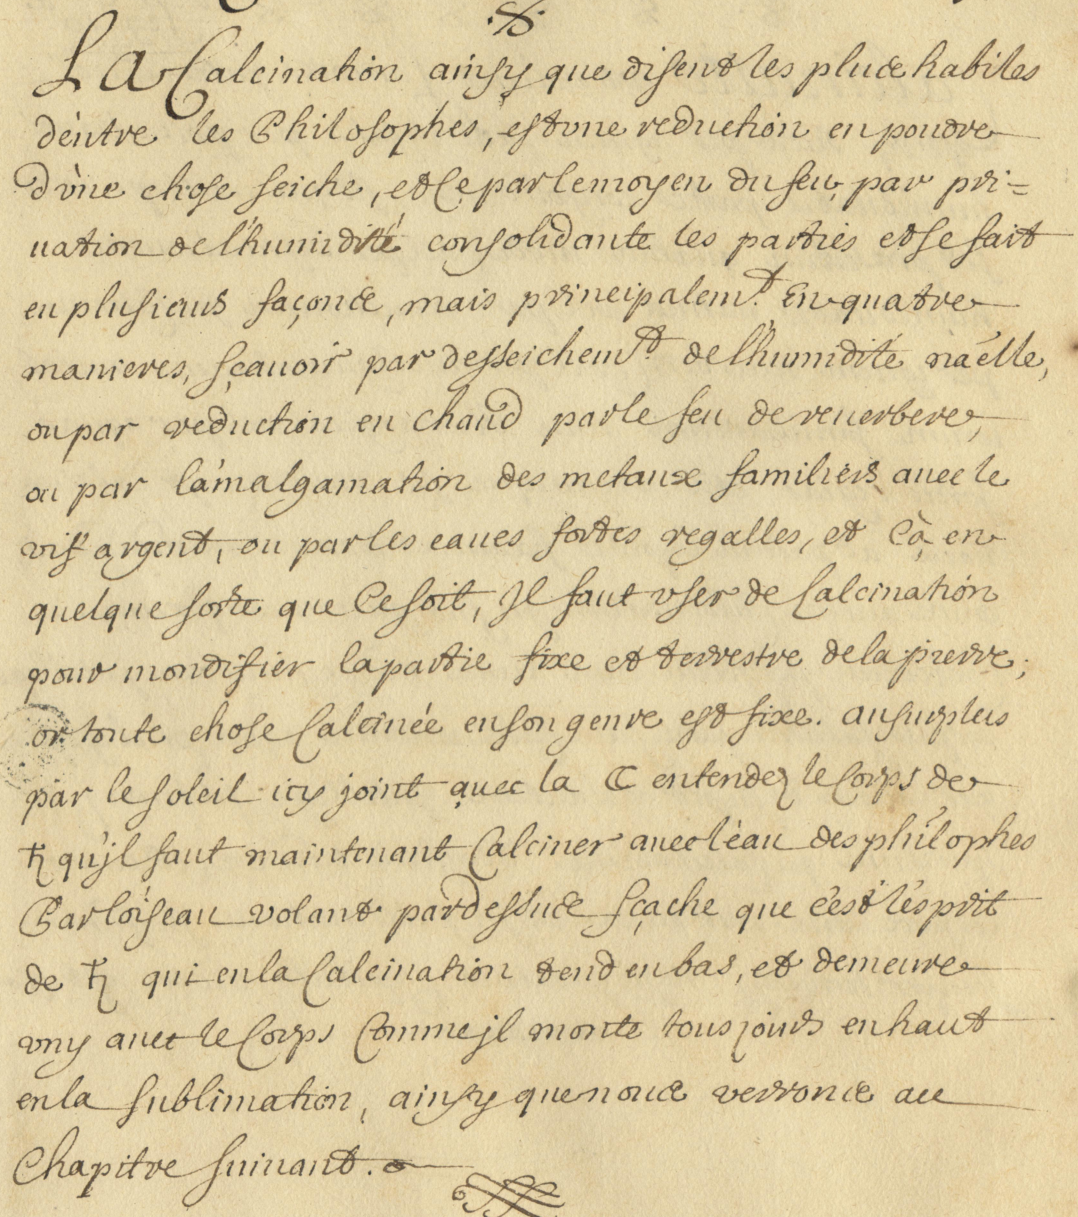 La Calcination ainsy que disent les plus habiles
d'entre les Philosophes, est vne reduction en poudre
d'vne chose seiche, et ce par le moyen du feu, par pri=
uation de l'humidité consolidante les parties et se fait
en plusieurs façons, mais principalem.t En quatre
manieres, sçauoir par desseichem.t de l'humidité na'elle,
ou par reduction en chaud par le feu de reuerbere,
ou par l'amalgamation des metaux familiers auec le
vif argent, ou par les eaues fortes regalles, et ça en
quelque sorte que Ce soit, Jl faut vser de Calcination
pour mondifier la partie fixe et terrestre de la pierre;
or toute chose Calcinée en son genre est fixe. au surplus
par le soleil icy joint auec la ☾ entendez le Corps de
♄ qu'jl faut maintenant Calciner auec l'eau des philophes
Par l'oiseau volant par dessus sçache que c'est l'esprit
de ♄ qui en la Calcination tend en bas, et demeure
vny auec le Corps Comme jl monte tousjours en haut
en la sublimation, ainsy que nous verrons au
Chapitre suiuant.